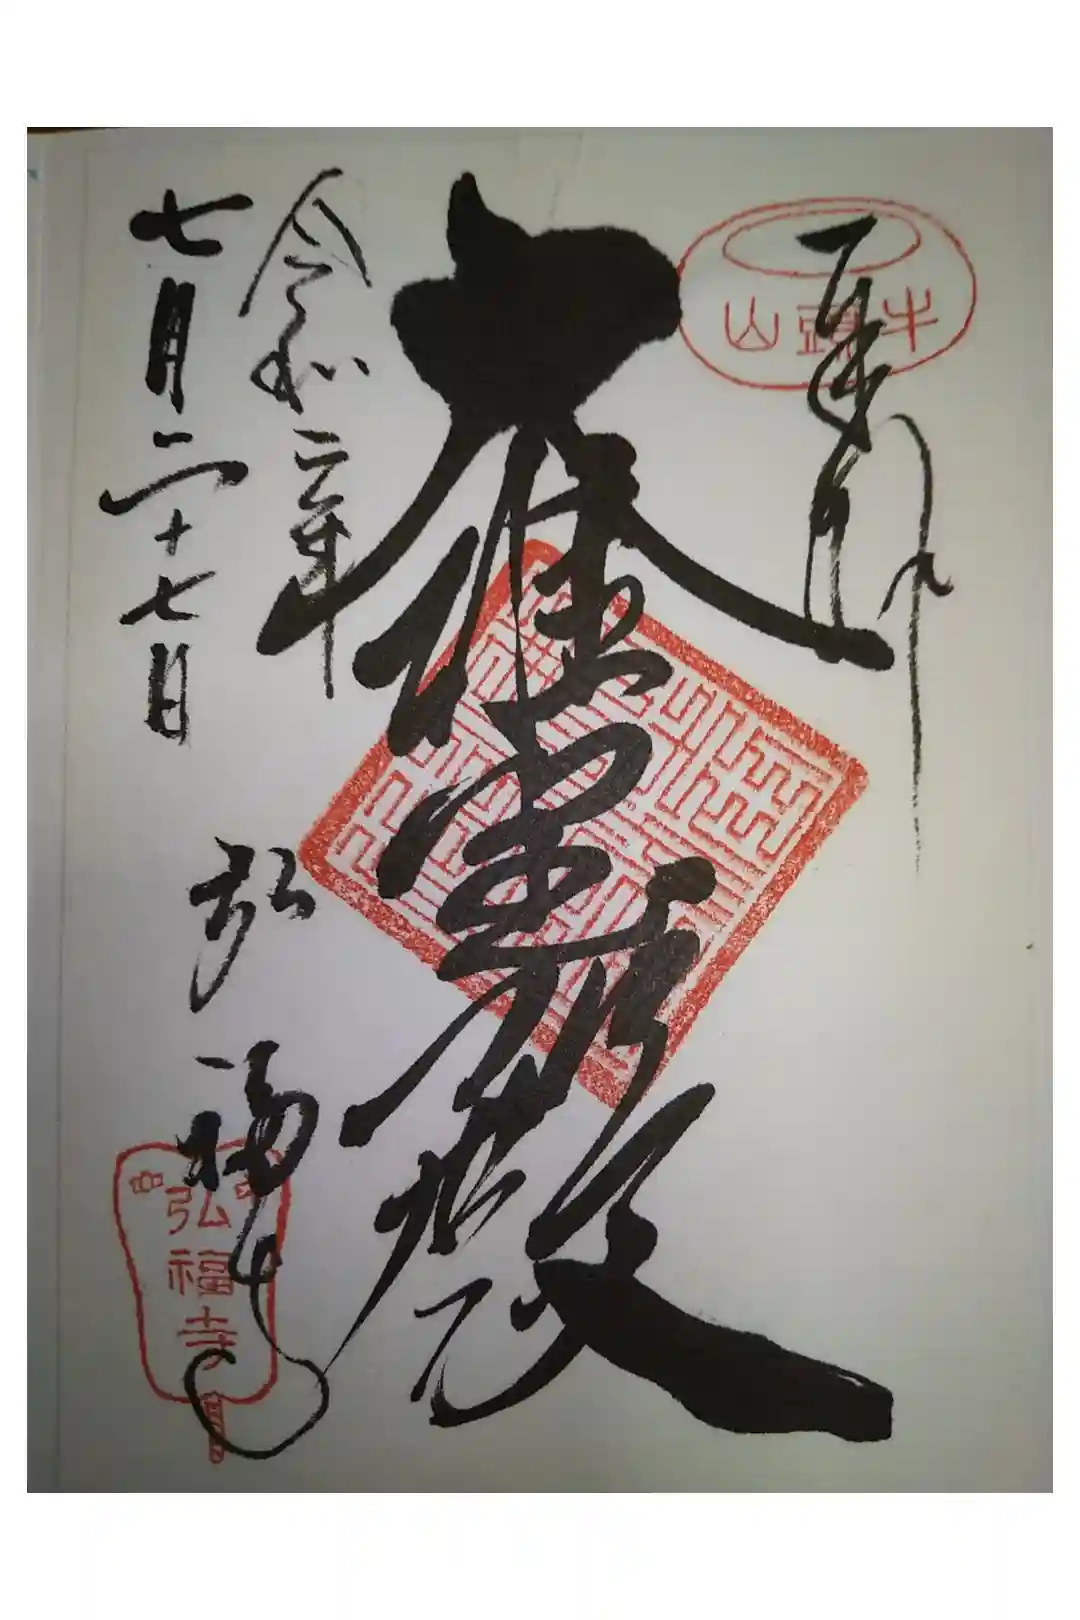 牛頭山
大雄寶殿
令和二年
七月二十七日
弘福寺
弘福寺